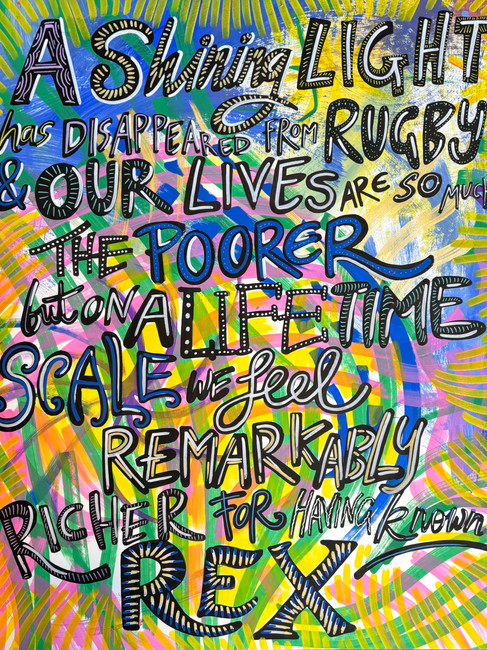 A Shining LIGHT
has DISAPPEARED FROM RUGBY
& OUR LIVES ARE SO MUCH
THE POORER
but ON A LIFETIME
SCALE WE feel
REMARKABLY
RICHER FOR HAVING known
REX